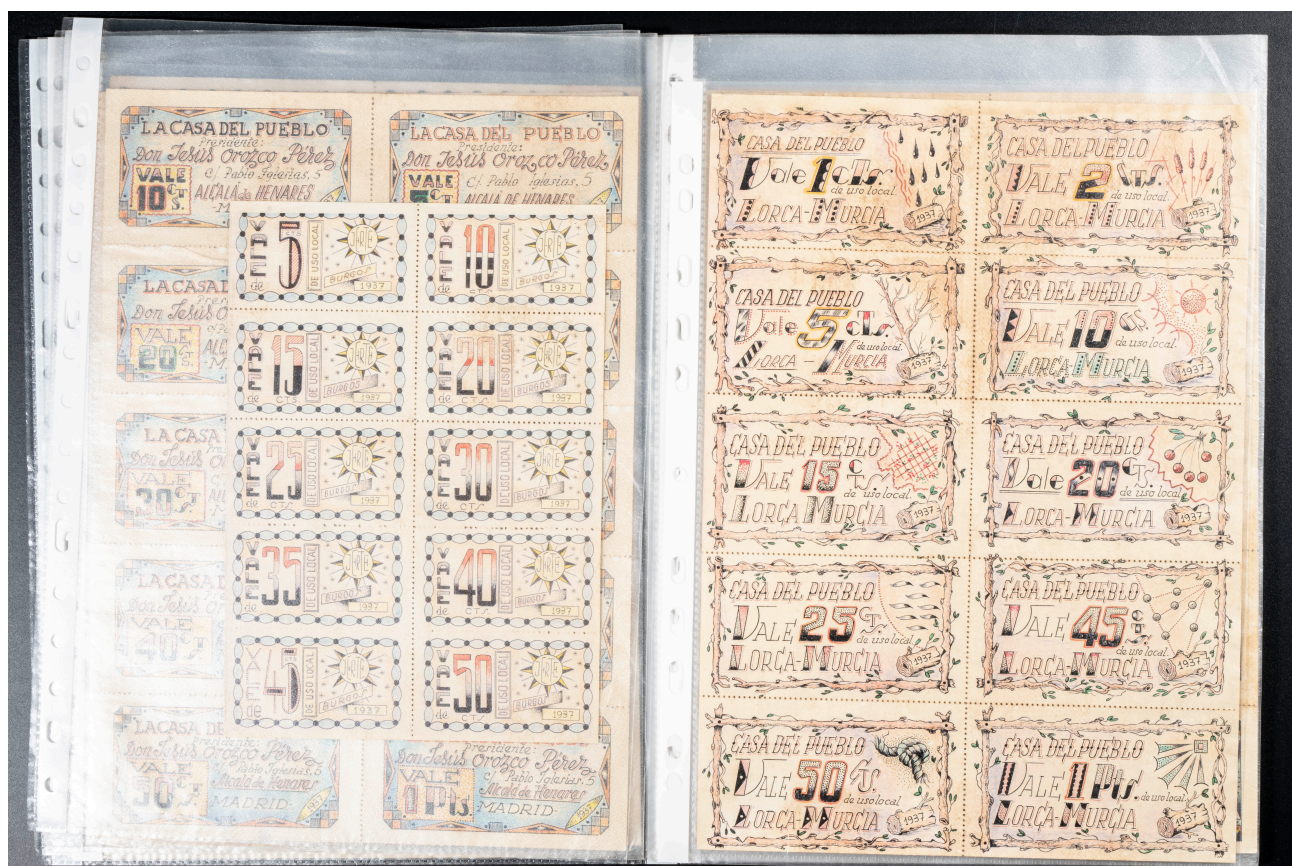 LA CASA DEL PUEBLO
Presidente:
Don Jesús Orozco Pérez
C/ Pablo Iglesias, 5
VALE
10 CTS.
ALCALÁ de HENARES
LA CASA DEL PUEBLO
Presidente:
Don Jesús Orozco Pérez
C/ Pablo Iglesias, 5
VALE
5 CT
ALCALA DE HENARES
LA CASA
Don Jesús
VALE
20
LA CASA
Don Jesús
VALE
30 CT
LA CASA
Don Jesús
VALE
40
LA CASA DE
Presidente:
Don Jesús Orozco Pérez
Pablo Iglesias, 5
VALE
Alcala de Henares
MADRID
1937
Presidente:
Don Jesús Orozco Pérez
C/ Pablo Iglesias, 5
VALE
1 Pts.
Alcala de Henares
MADRID
1937
VALE de 5 CTS
DE USO LOCAL
BURGOS
1937
VALE de 10 CTS
DE USO LOCAL
BURGOS
1937
VALE de 15 CTS
DE USO LOCAL
BURGOS
1937
VALE de 20 CTS
DE USO LOCAL
BURGOS
1937
VALE de 25 CTS
DE USO LOCAL
BURGOS
1937
VALE de 30 CTS
DE USO LOCAL
BURGOS
1937
VALE de 35 CTS
DE USO LOCAL
BURGOS
1937
VALE de 40 CTS
DE USO LOCAL
BURGOS
1937
VALE de 45
DE USO LOCAL
BURGOS
1937
VALE de 50 CTS
DE USO LOCAL
BURGOS
1937
CASA DEL PUEBLO
Vale 1 cts
de uso local
LORCA-MURCIA
1937
CASA DEL PUEBLO
VALE 2 CTS.
de uso local.
LORCA-MURCIA
1937
CASA DEL PUEBLO
Vale 5 CTS
de uso local.
LORCA - MURCIA
1937
CASA DEL PUEBLO
VALE 10 CTS.
de uso local.
LORCA-MURCIA
1937
CASA DEL PUEBLO
VALE 15 CTS.
de uso local
LORCA MURCIA
1937
CASA DEL PUEBLO
Vale 20 CT.
de uso local.
LORCA-MURCIA
1937
CASA DEL PUEBLO
VALE 25 CTS.
de uso local.
LORCA-MURCIA
1937
CASA DEL PUEBLO
VALE 45 CTS.
de uso local.
LORCA-MURCIA
1937
CASA DEL PUEBLO
VALE 50 CTS.
de uso local.
LORCA-MURCIA
1937
CASA DEL PUEBLO
VALE 1 Pts.
de uso local.
LORCA-MURCIA
1937